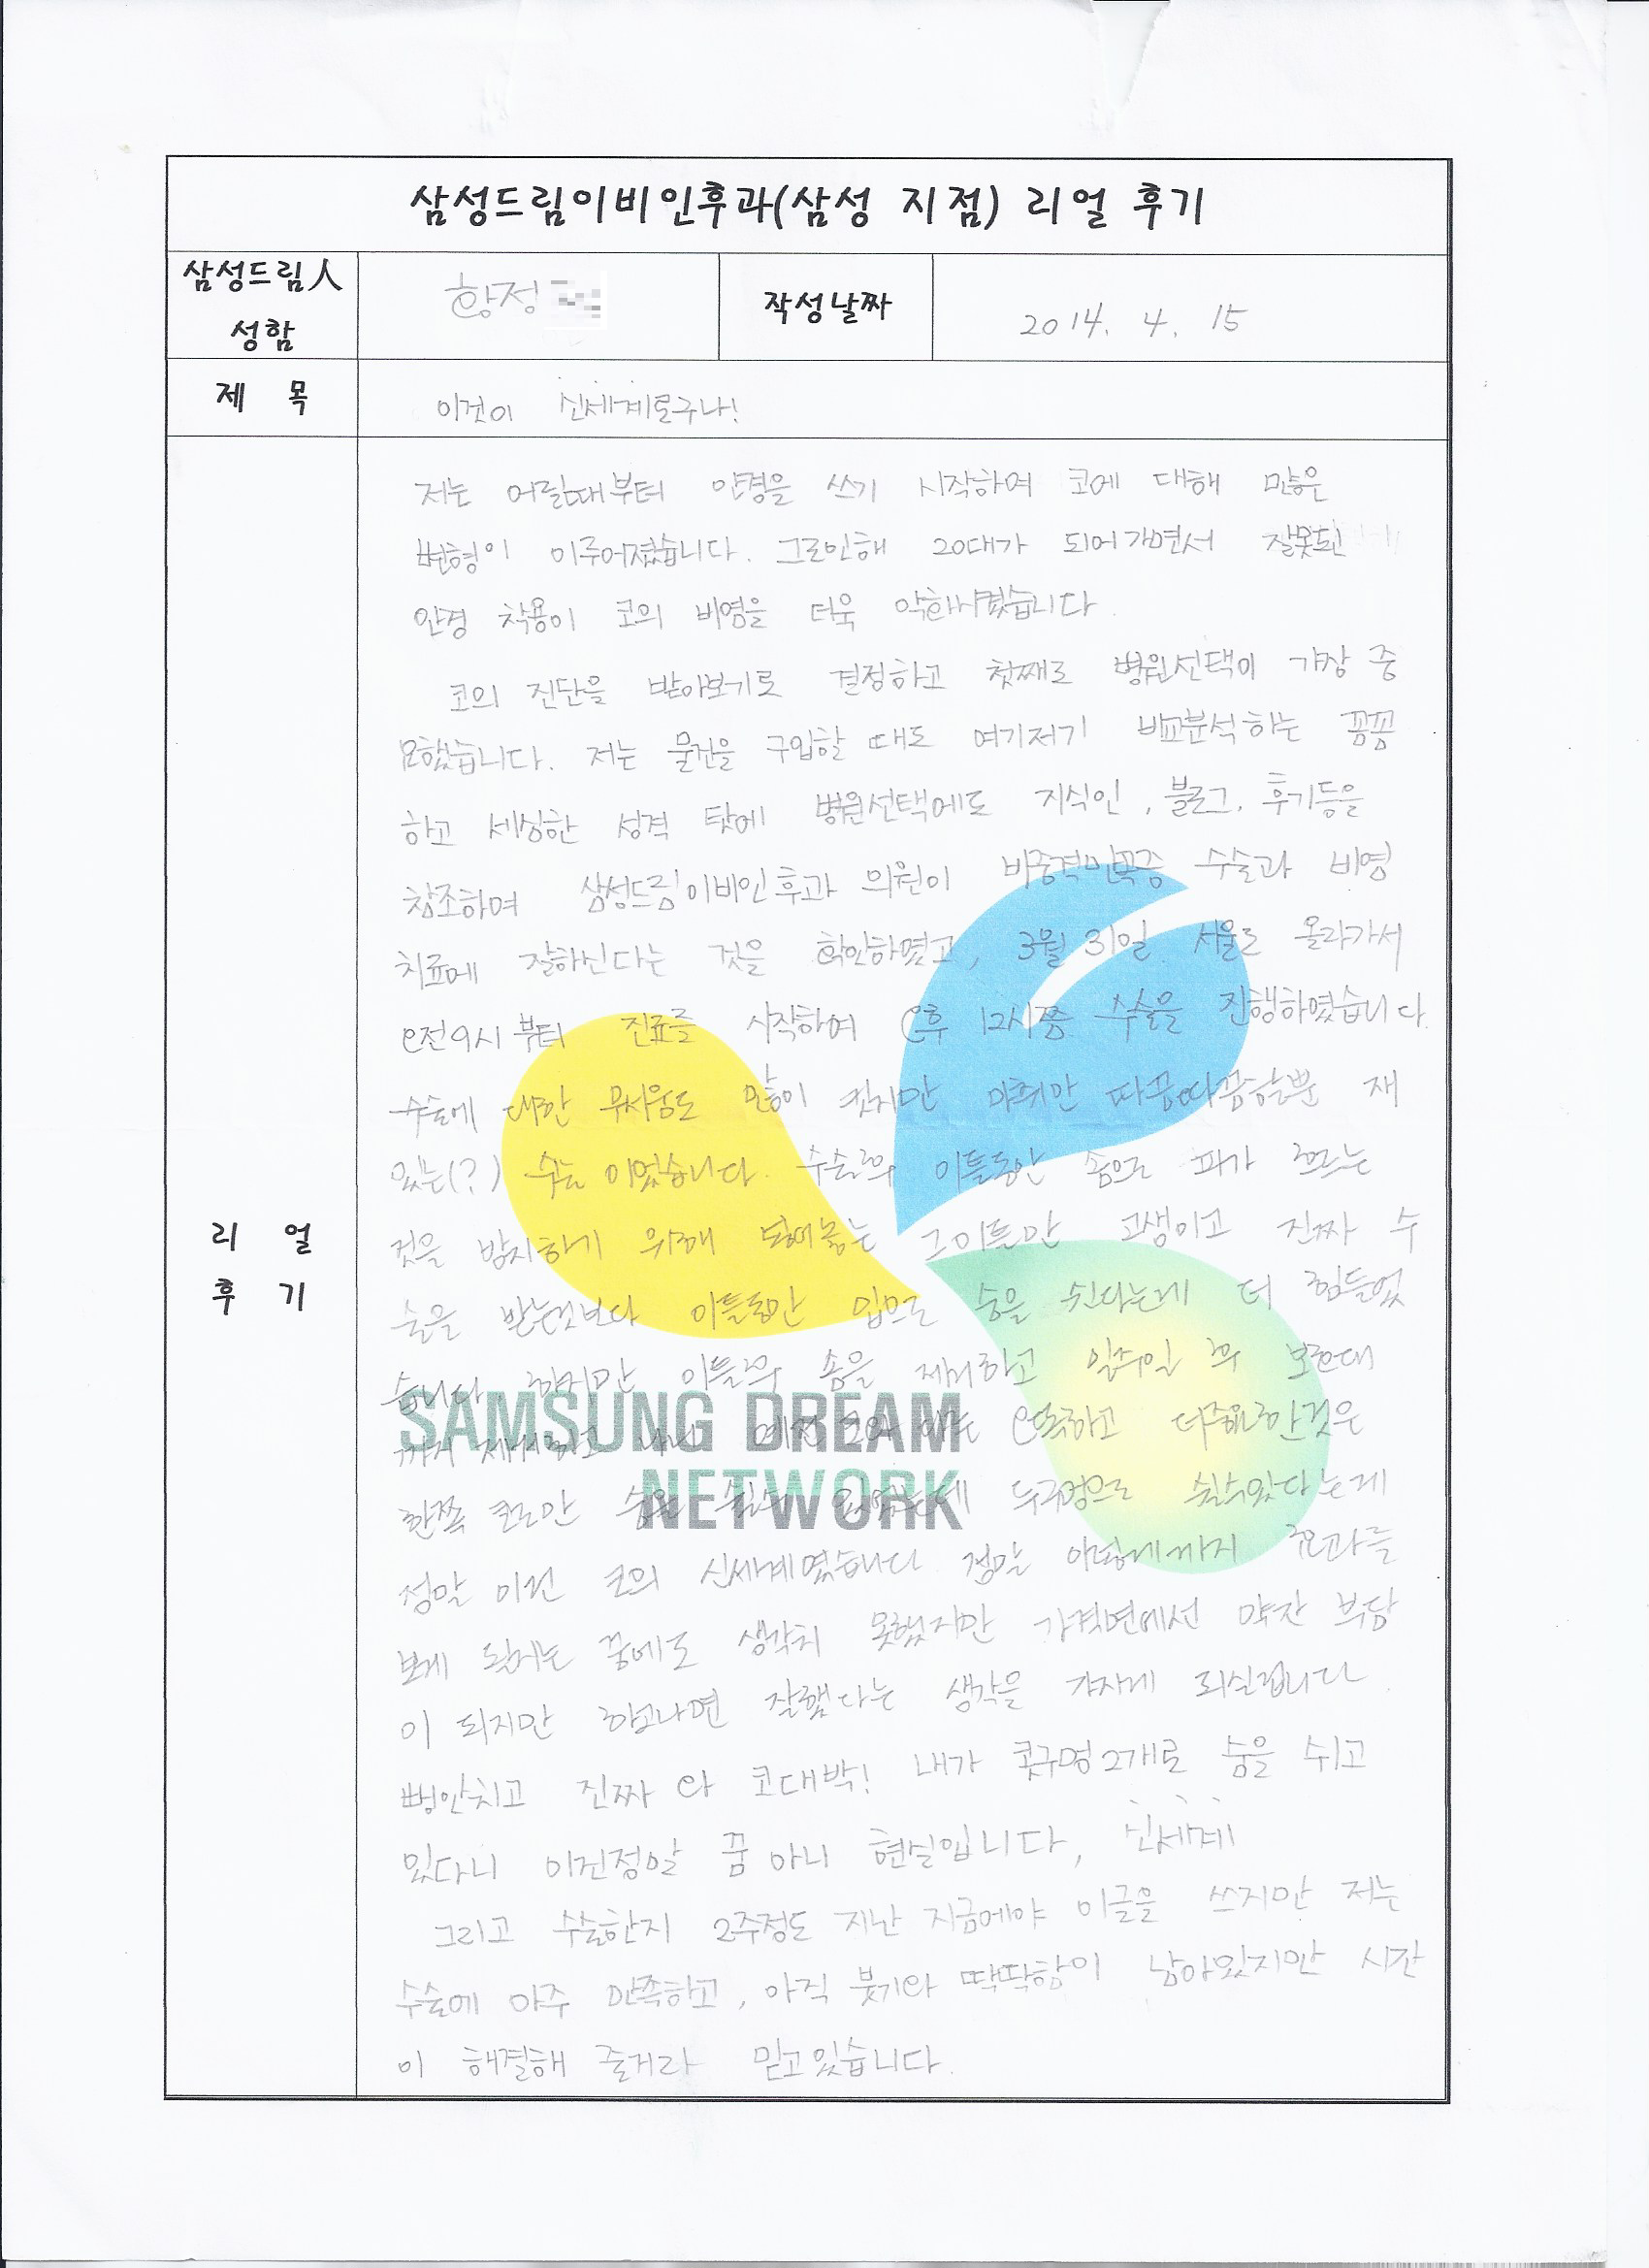 삼성드림이비인후과(삼성 지점) 리얼 후기
삼성드림人
성함
황정
작성날짜
2014. 4. 15
제 목
이것이 신세계로구나!
리 얼
후 기
저는 어릴때부터 안경을 쓰기 시작하여 코에 대해 많은
변형이 이루어졌습니다. 그로인해 20대가 되어가면서 잘못된
안경 착용이 코의 비염을 더욱 악화시켰습니다.
코의 진단을 받아보기로 결정하고 첫째로 병원선택이 가장 중
요했습니다. 저는 물건을 구입할 때도 여기저기 비교분석하는 꼼꼼
하고 세심한 성격 탓에 병원선택에도 지식인, 블로그, 후기등을
참조하여 삼성드림이비인후과 의원이 비중격만곡증 수술과 비염
치료에 잘하신다는 것을 확인하였고, 3월 31일 서울로 올라가서
오전9시부터 진료를 시작하여 오후 12시쯤 수술을 진행하였습니다.
수술에 대한 무서움도 많이 컸지만 마취만 따끔따끔할뿐 재
있는(?) 수술 이었습니다. 수술후 이틀동안 솜으로 피가 흐르는
것을 방지하기 위해 넣어놓는 그이틀만 고생이고 진짜 수
술을 받는것보다 이틀동안 입으로 숨을 쉰다는게 더 힘들었
습니다. 하지만 이틀후 솜을 제거하고 일주일 후 보형대
까지 제거하고 나니 예전 코와 다른 오똑하고 더중요한것은
한쪽 코로만 숨을 쉴수 있었는데 두구멍으로 쉴수있다는게
정말 이건 코의 신세계였습니다. 정말 이렇게까지 효과를
보게 될꺼는 꿈에도 생각치 못했지만 가격면에선 약간 부담
이 되지만 하고나면 잘했다는 생각을 가지게 되실겁니다.
뻥안치고 진짜 와 코대박! 내가 콧구멍2개로 숨을 쉬고
있다니 이건정말 꿈 아니 현실입니다, 신세계
그리고 수술한지 2주정도 지난 지금에야 이글을 쓰지만 저는
수술에 아주 만족하고, 아직 붓기와 딱딱함이 남아있지만 시간
이 해결해 줄거라 믿고있습니다.
SAMSUNG DREAM
NETWORK